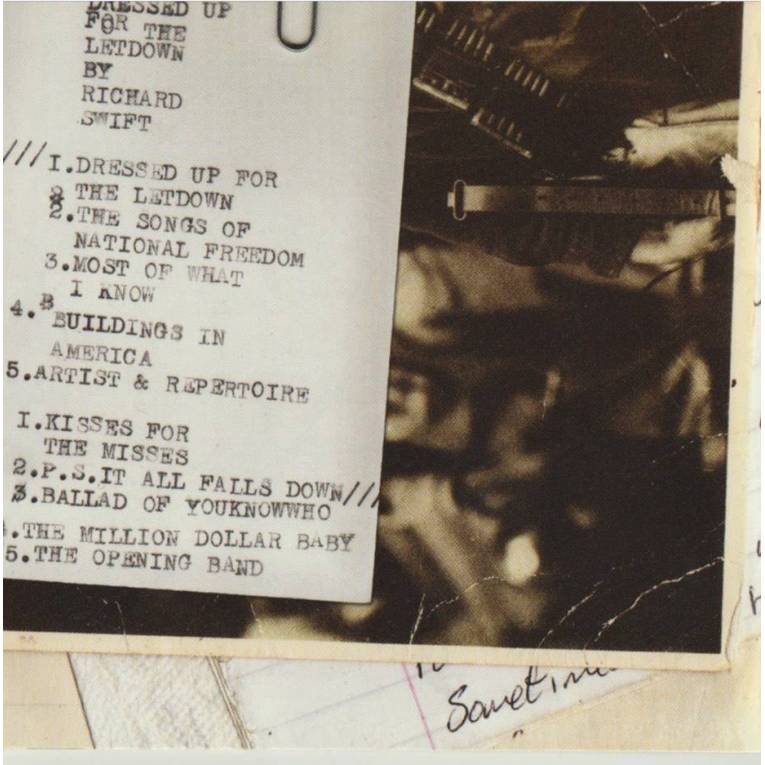 DRESSED UP
FOR THE
LETDOWN
BY
RICHARD
SWIFT
///I.DRESSED UP FOR
THE LETDOWN
2.THE SONGS OF
NATIONAL FREEDOM
3.MOST OF WHAT
I KNOW
4.B
BUILDINGS IN
AMERICA
5.ARTIST & REPERTOIRE
I.KISSES FOR
THE MISSES
2.P.S.IT ALL FALLS DOWN///
3.BALLAD OF YOUKNOWWHO
.THE MILLION DOLLAR BABY
5.THE OPENING BAND